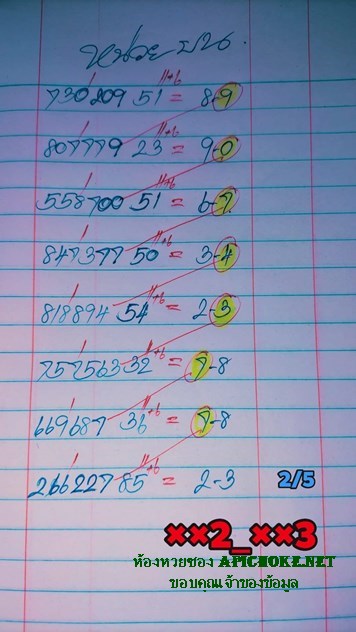 หน่วยบน.
730209 51 +6 = 8-9
807779 23 +6 = 9-0
558700 51 +6 = 6-7
847377 50 +6 = 3-4
818894 54 +6 = 2-3
757563 32 +6 = 7-8
669687 36 +6 = 7-8
266227 85 +6 = 2-3 2/5
××2_××3
ห้องหวยซอง APICHOKE.NET
ขอบคุณเจ้าของข้อมูล